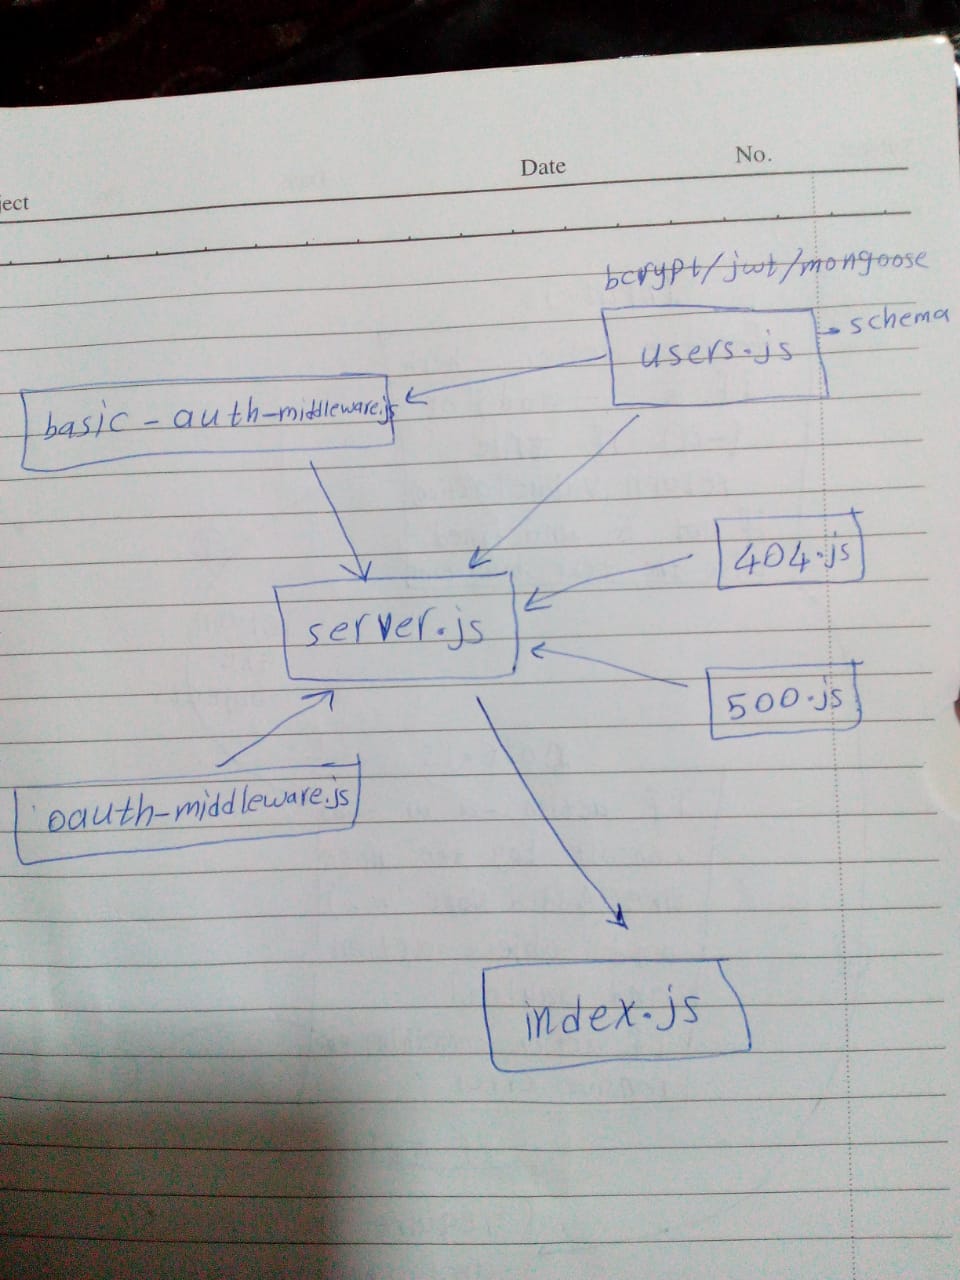 ject
Date
No.
bcrypt/jwt/mongoose
schema
users.js
basic-auth-middleware.js
404.js
server.js
500.js
oauth-middleware.js
index.js